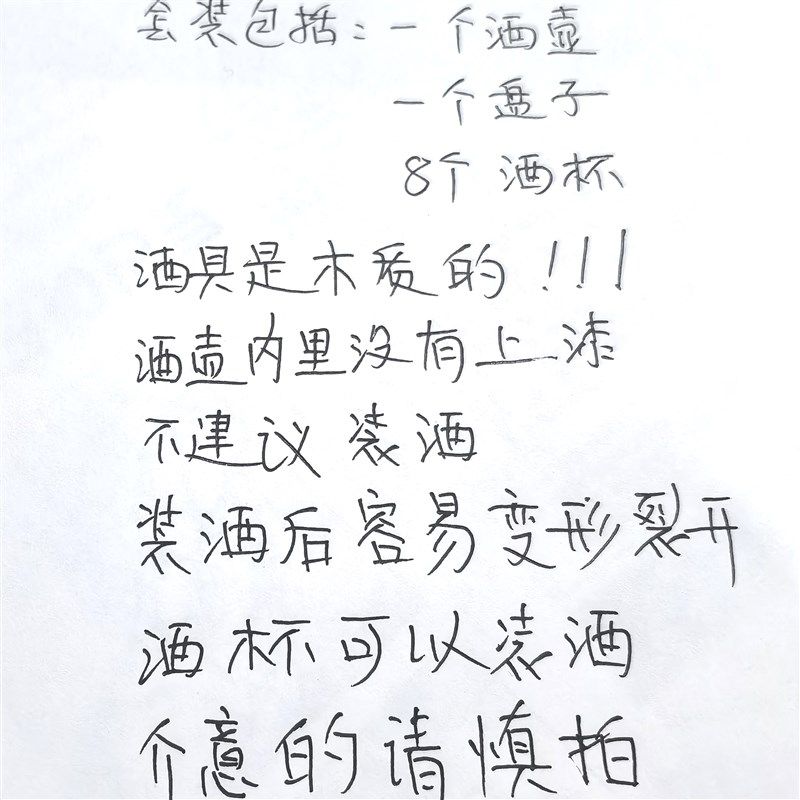 套装包括：一个酒壶
一个盘子
8个酒杯
酒具是木质的！！！
酒壶内里没有上漆
不建议装酒
装酒后容易变形裂开
酒杯可以装酒
介意的请慎拍